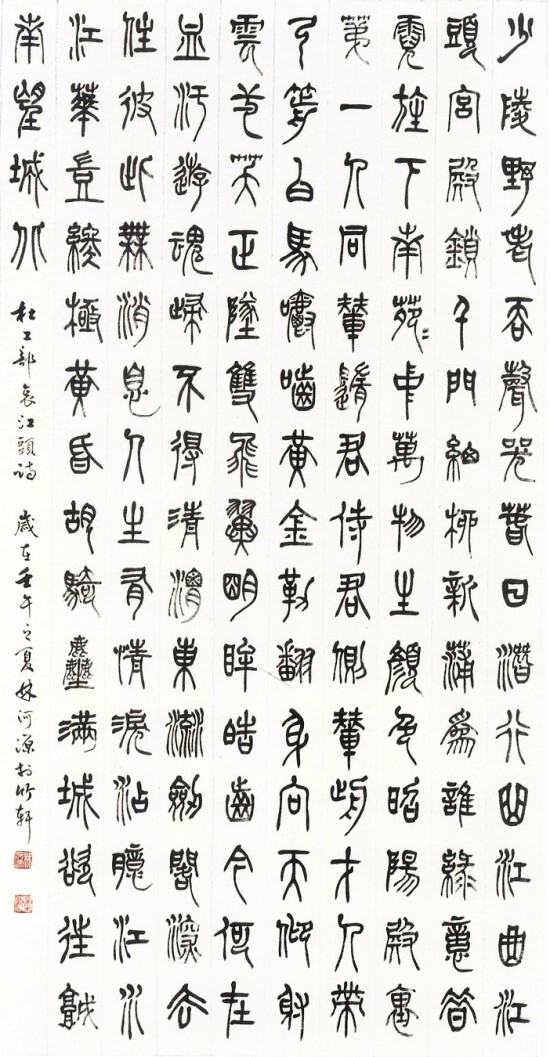 少陵野老吞聲哭春日潛行曲江曲江
頭宮殿鎖千門細柳新蒲爲誰綠憶昔
霓旌下南苑〻中萬物生顏色昭陽殿裏
第一人同輦隨君侍君側輦前才人帶
弓箭白馬嚼齧黃金勒翻身向天仰射
雲一笑正墜雙飛翼明眸皓齒今何在
血污遊魂歸不得清渭東流劍閣深去
住彼此無消息人生有情淚沾臆江水
江華豈終極黃昏胡騎塵滿城欲往城
南望城北 杜工部哀江頭詩 歲在壬午之夏林河源於竹軒